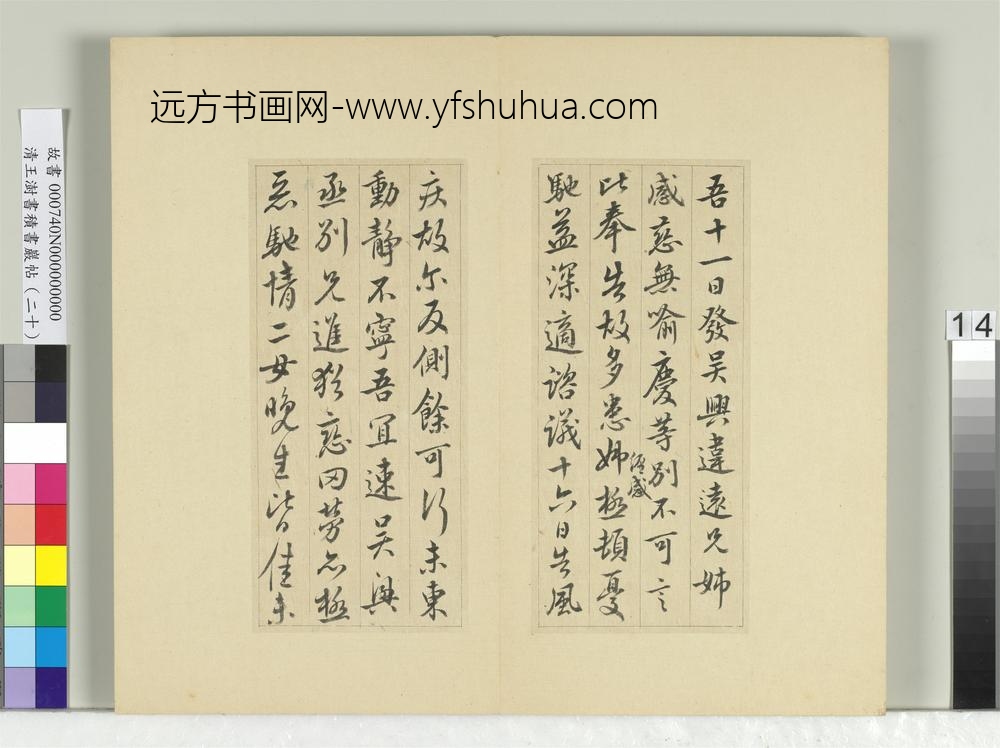 远方书画网-www.yfshuhua.com
吾十一日發吴興違遠兄姊
感慈無喻慶等別不可言
傾感
比奉告故多患姊極頓憂
馳益深適諮議十六日告風
疾故尔反側餘可行未東
動靜不寧吾宜速吴興
丞別兄進猶戀罔勞亦極
惡馳情二女晚生皆佳未
故書 000740N000000000
清王澍書積書巖帖（二十）
14